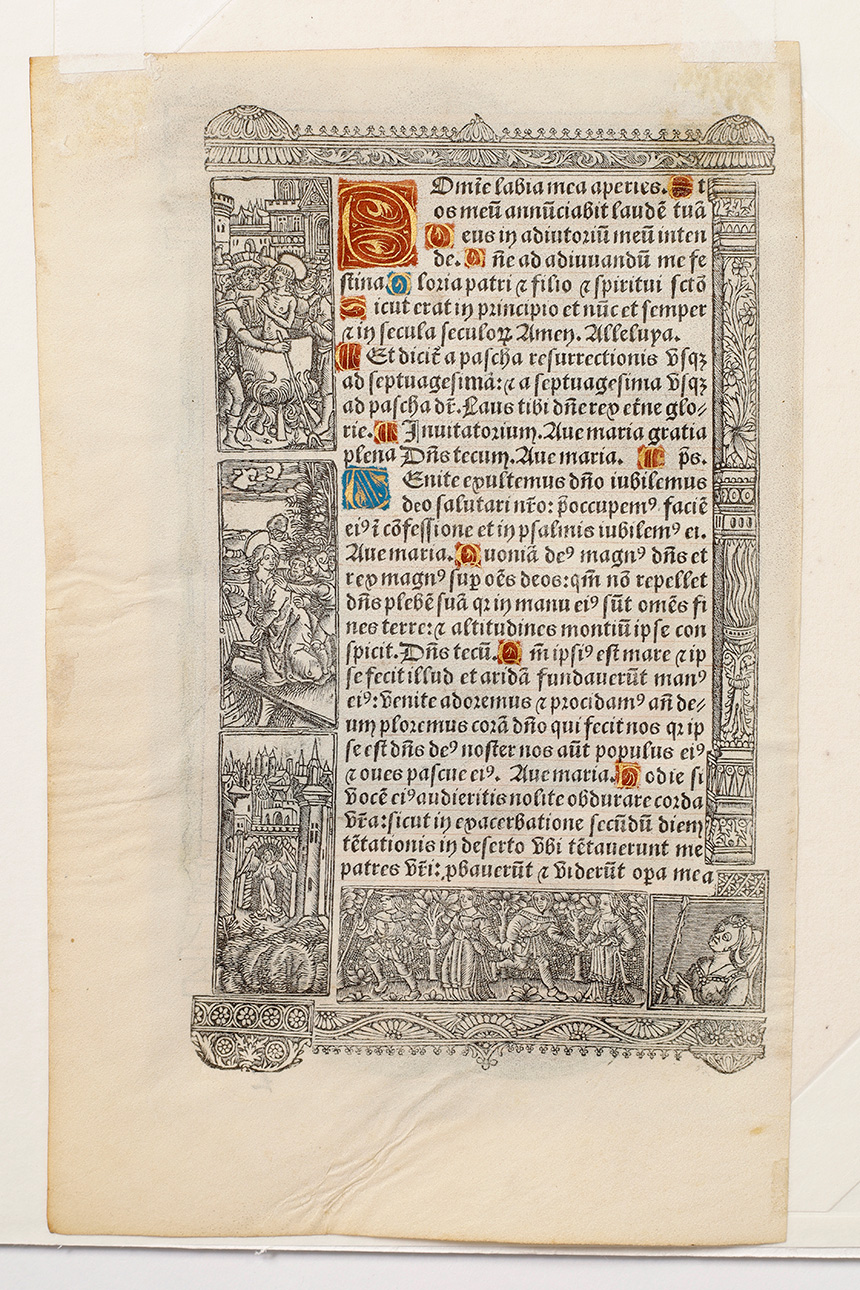 Domīe labia mea aperies. Et
os meū annūciabit laudē tuā
Deus in adiutoriū meū inten
de. Dñe ad adiuuandū me fe
stina. Gloria patri ⁊ filio ⁊ spiritui sctō
Sicut erat in principio et nūc et semper
⁊ in secula seculoꝝ Amen. Alleluya.
Et dicit̄ a pascha resurrectionis vsqꝫ
ad septuagesimā: ⁊ a septuagesima vsqꝫ
ad pascha dr̄. Laus tibi dñe rex etñe glo⸗
rie. Inuitatorium. Aue maria gratia
plena Dñs tecum. Aue maria. p̄s.
Venite exultemus dño iubilemus
deo salutari nr̄o: p̄occupemꝰ faciē
eiꝰ ī cōfessione et in psalmis iubilemꝰ ei.
Aue maria. Quoniā deꝰ magnꝰ dñs et
rex magnꝰ suꝑ oēs deos: qm̄ nō repellet
dñs plebē suā qr in manu eiꝰ sūt omēs fi
nes terre: ⁊ altitudines montiū ipse con
spicit. Dñs tecū. Qm̄ ipsiꝰ est mare ⁊ ip
se fecit illud et aridā fundauerūt manꝰ
eiꝰ: venite adoremus ⁊ procidamꝰ añ de⸗
um ploremus corā dño qui fecit nos qr ip
se est dñs deꝰ noster nos aūt populus eiꝰ
⁊ oues pascue eiꝰ. Aue maria. Hodie si
vocē eiꝰ audieritis nolite obdurare corda
vr̄a: sicut in exacerbatione secūdū diem
tētationis in deserto vbi tētauerunt me
patres vr̄i: ꝓbauerūt ⁊ viderūt oꝑa mea